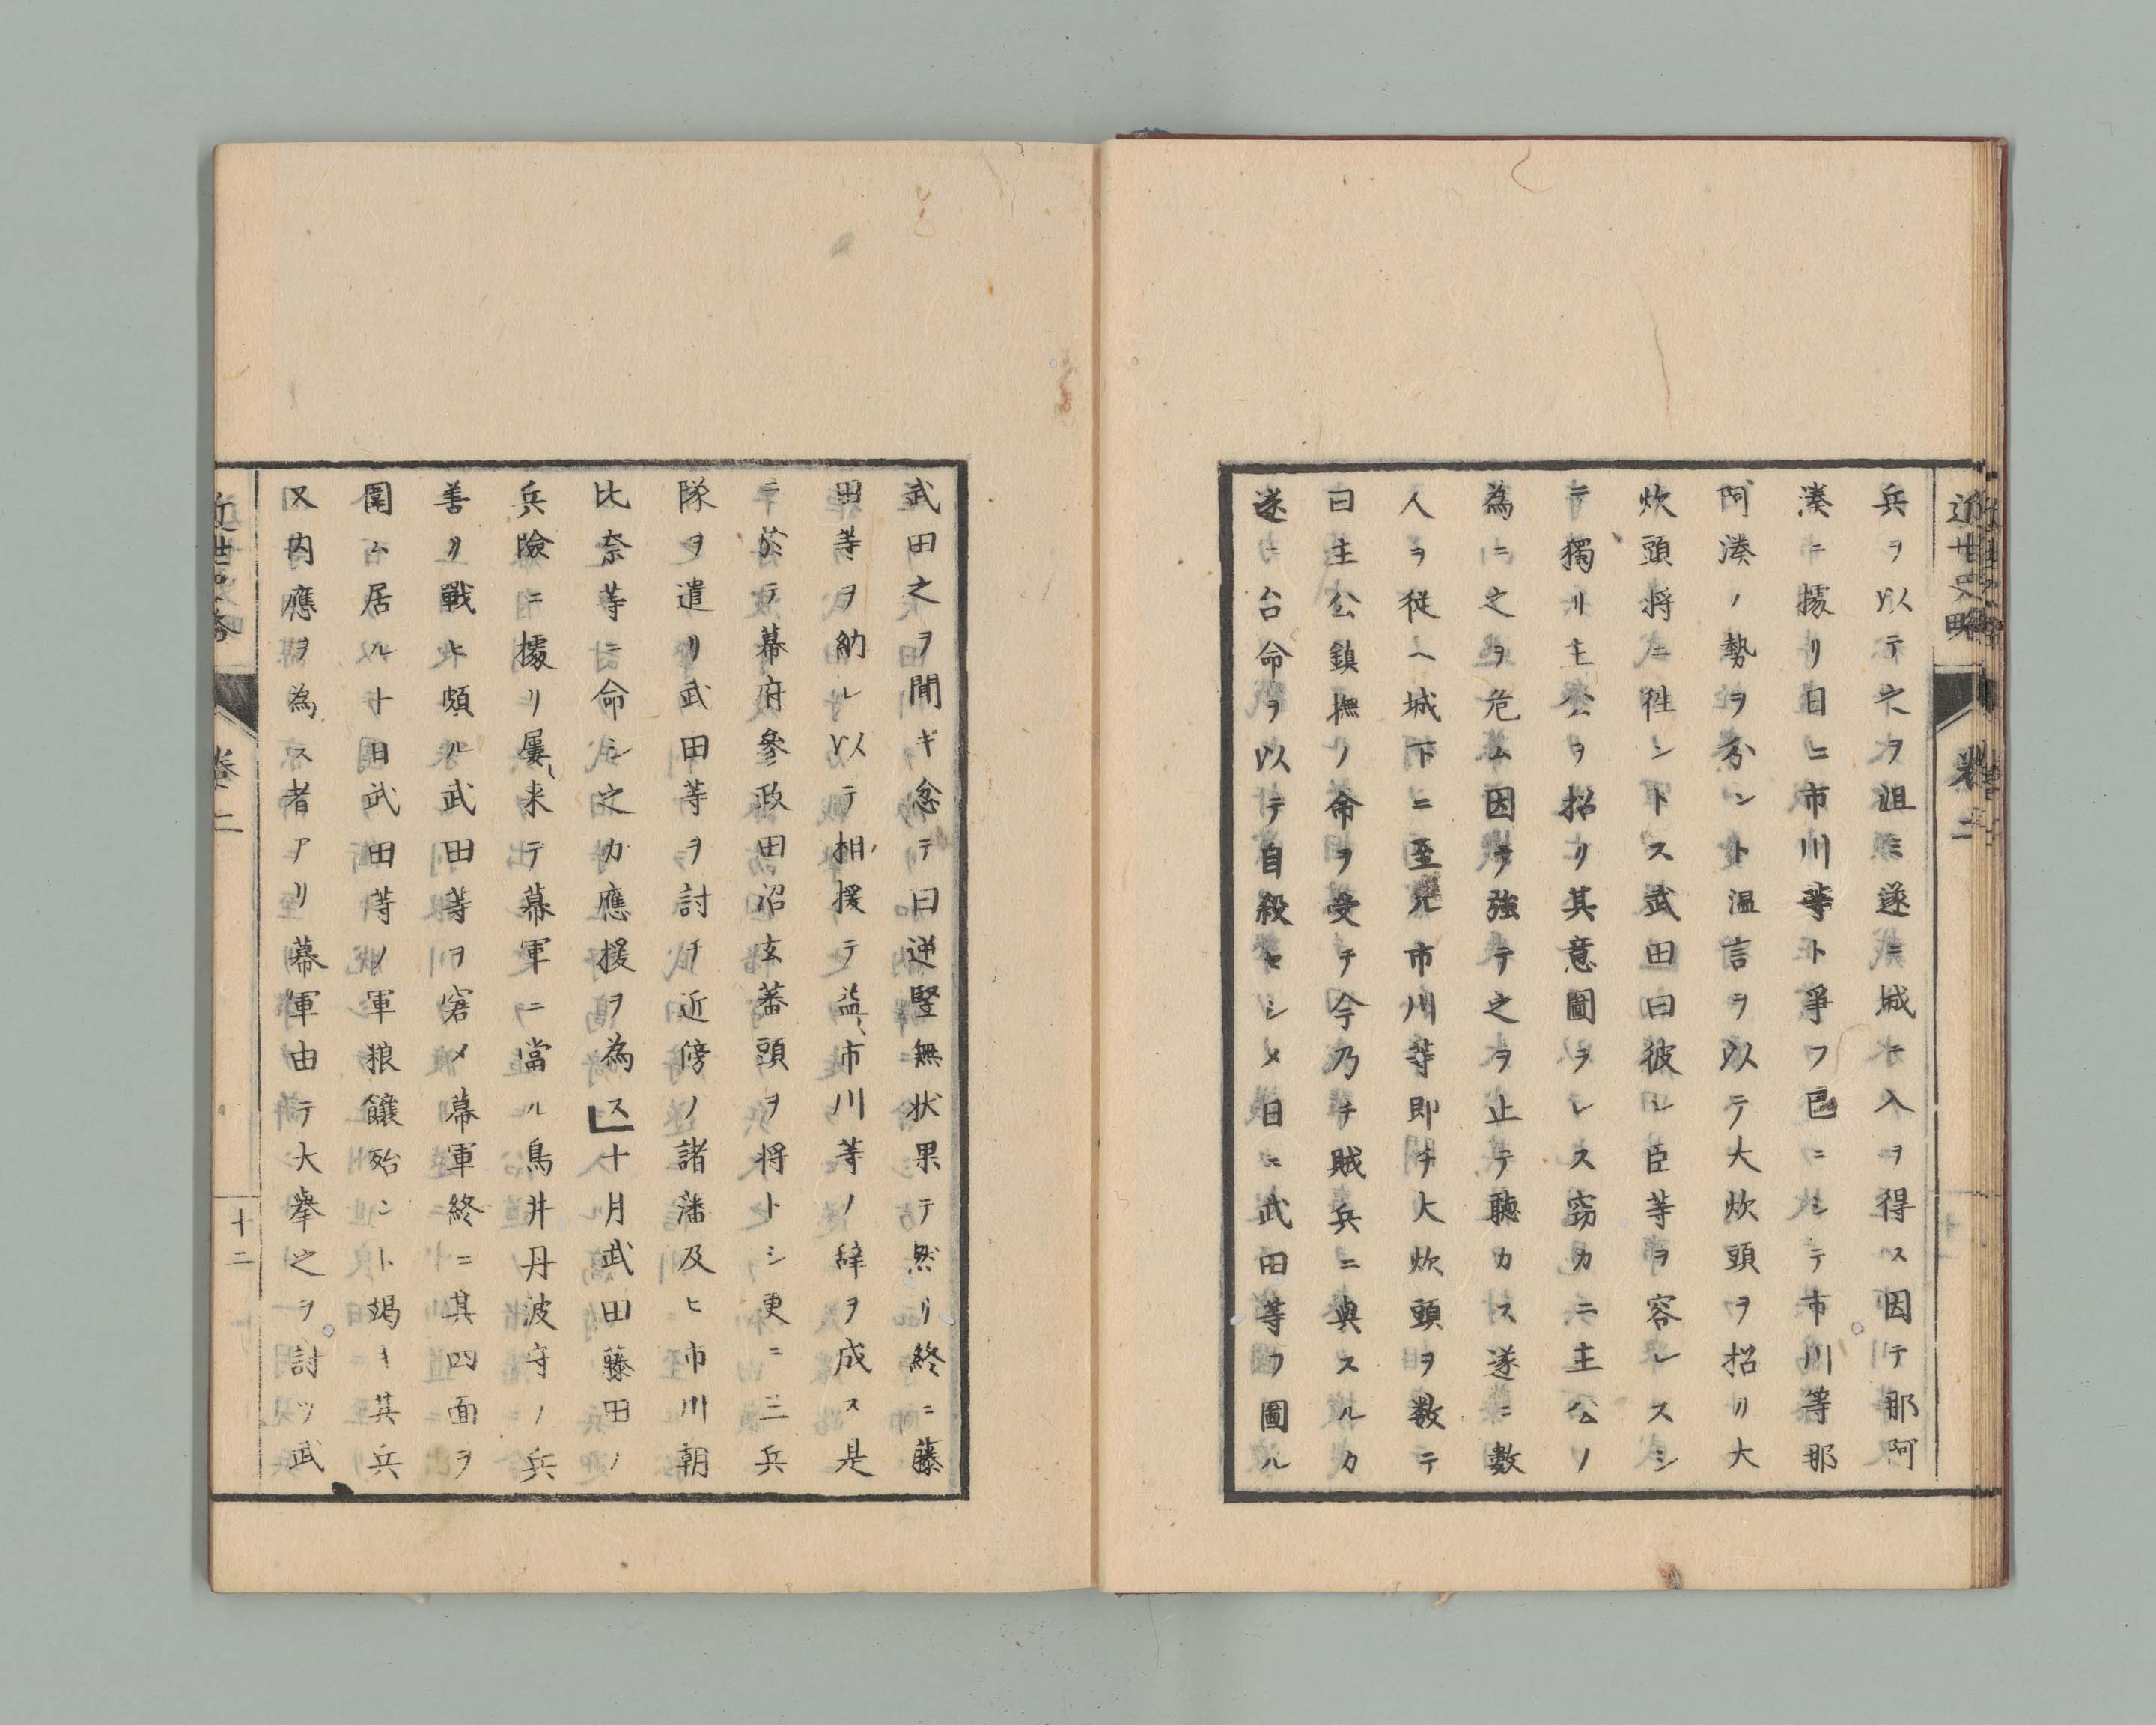 近世史略 卷二
兵ヲ以テ之ヲ沮ミ遂ニ城ニ入ヲ得ス因テ那阿
湊ニ據リ日ニ市川等ト爭フ已ニシテ市川等那
阿湊ノ勢ヲ分ント温言ヲ以テ大炊頭ヲ招リ大
炊頭将ニ徃ントス武田曰彼レ臣等ヲ容レスシ
テ獨リ主公ヲ招リ其意圖ラレス窃カニ主公ノ
為ニ之ヲ危ム因テ強テ之ヲ止テ聽カス遂ニ數
人ヲ従ヘ城下ニ至ル市川等即チ大炊頭ヲ数テ
曰主公鎮撫ノ命ヲ受テ今乃チ賊兵ニ與スルカ
遂ニ台命ヲ以テ自殺セシメ日ニ武田等ヲ圖ル
武田之ヲ聞ギ忿テ曰逆豎無状果テ然リ終ニ藤
田等ヲ納レ以テ相援テ益市川等ノ辞ヲ成ス是
ニ於テ幕府參政田沼玄蕃頭ヲ将トシ更ニ三兵
隊ヲ遣リ武田等ヲ討チ近傍ノ諸潘及ヒ市川朝
比奈等ニ命シ之カ應援ヲ為ス十月武田藤田ノ
兵險ニ據リ屢来テ幕軍ニ當ル鳥井丹波守ノ兵
善リ戰ヒ頗ル武田等ヲ窘メ幕軍終ニ其四面ヲ
圍ム居ルト日武田等ノ軍粮饟殆ント竭キ其兵
又内應ヲ為ス者アリ幕軍由テ大擧之ヲ討ツ武
近世史略 卷二 十二